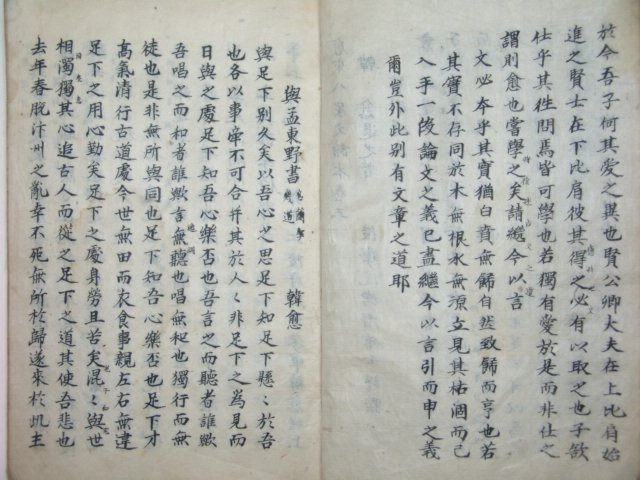 於今吾子何其愛之異也賢公卿大夫在上比肩始
進之賢士在下比肩彼其得之必有以取之也子欲
仕乎其徃問焉皆可學也若獨有愛於是而非仕之
謂則愈也嘗學之矣請継今以言
文必本乎其實猶白賁無餙自然致餙而亨也若
其實不存同於木無根水無源立見其枯涸而已
入手一段論文之義已盡継今以言引而申之義
爾豈外此别有文章之道耶
與孟東野書 韓愈
與足下别久矣以吾心之思足下知足下懸〻於吾
也各以事牵不可合并其於人〻非足下之為見而
日與之處足下知吾心樂否也吾言之而聽者誰歟
吾唱之而和者誰歟言無聽也唱無和也獨行而無
徒也是非無所與同也足下知吾心樂否也足下才
高氣清行古道處今世無田而衣食事親左右無違
足下之用心勤矣足下之處身勞且苦矣混〻與世
相濁獨其心追古人而從之足下之道其使吾悲也
去年春脱汴州之亂幸不死無所於歸遂来於此主